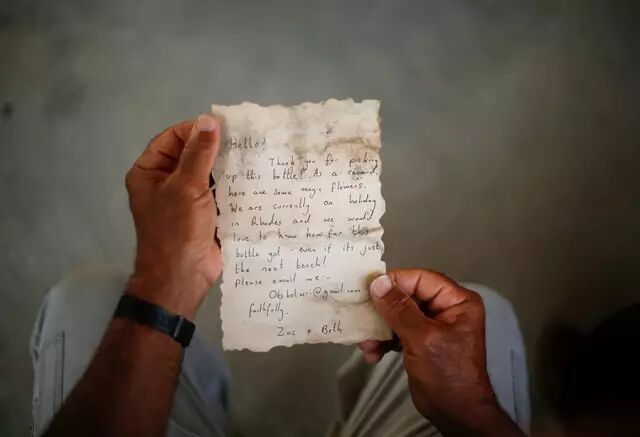 Hello!
Thank you for picking
up this bottle! As a reward,
here are some magic flowers.
We are currently on holiday
in Rhodes and we would
love to know how far this
bottle got - even if its just
the next beach!
Please email me:-
@gmail.com
faithfully.
Zac + Beth